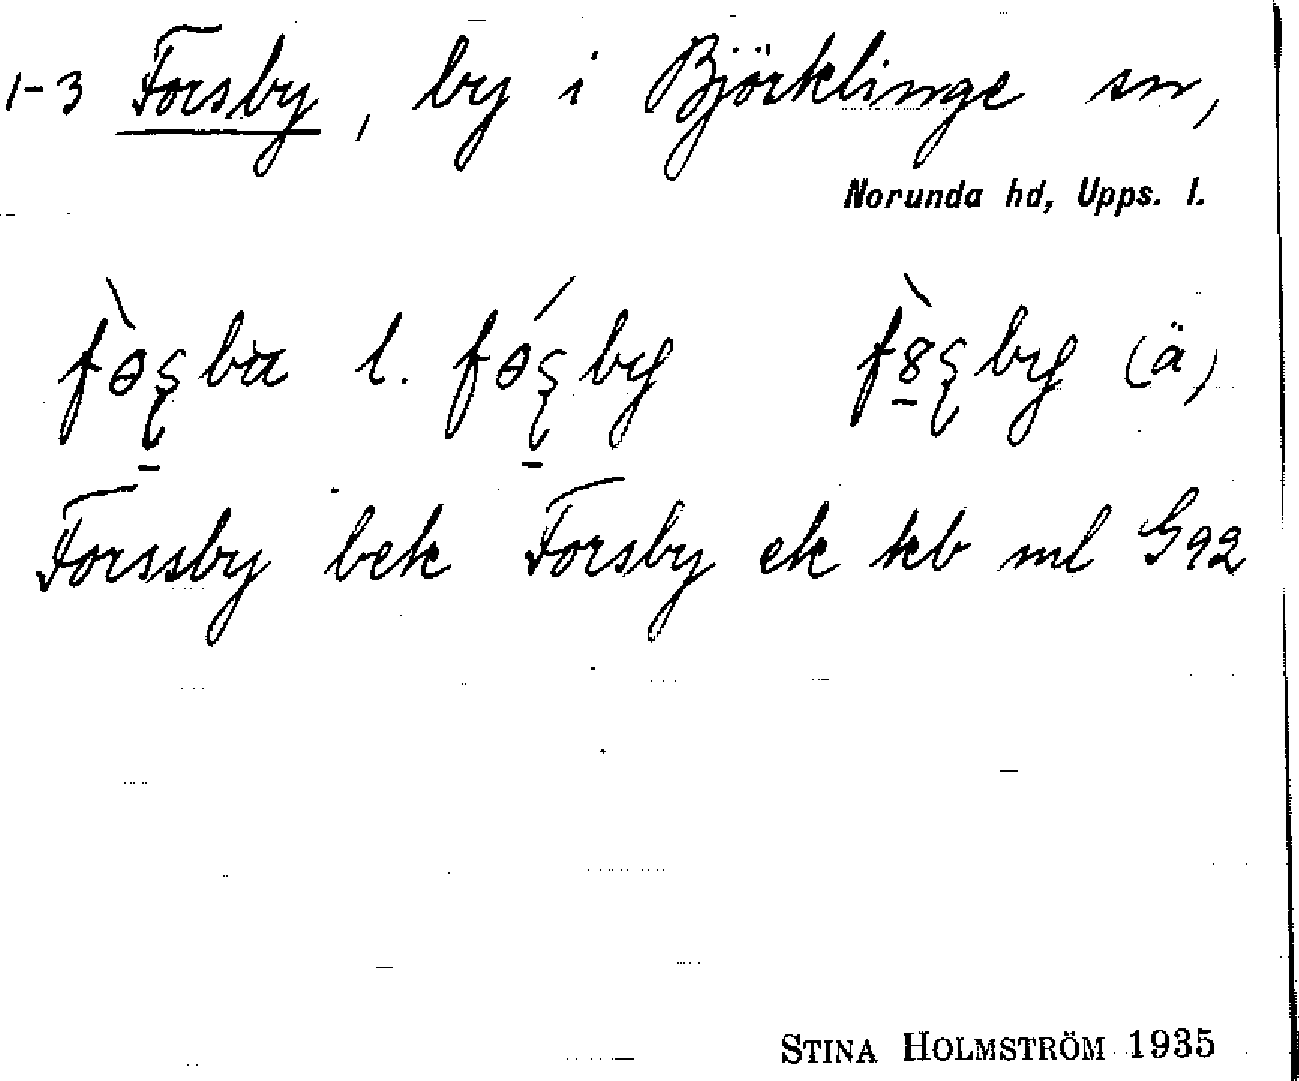 1-3 Forsby, by i Björklinge sn,
Norunda hd, Upps. l.
l. (ä)
Forssby bek Forsby ek kb ml G92
STINA HOLMSTRÖM 1935